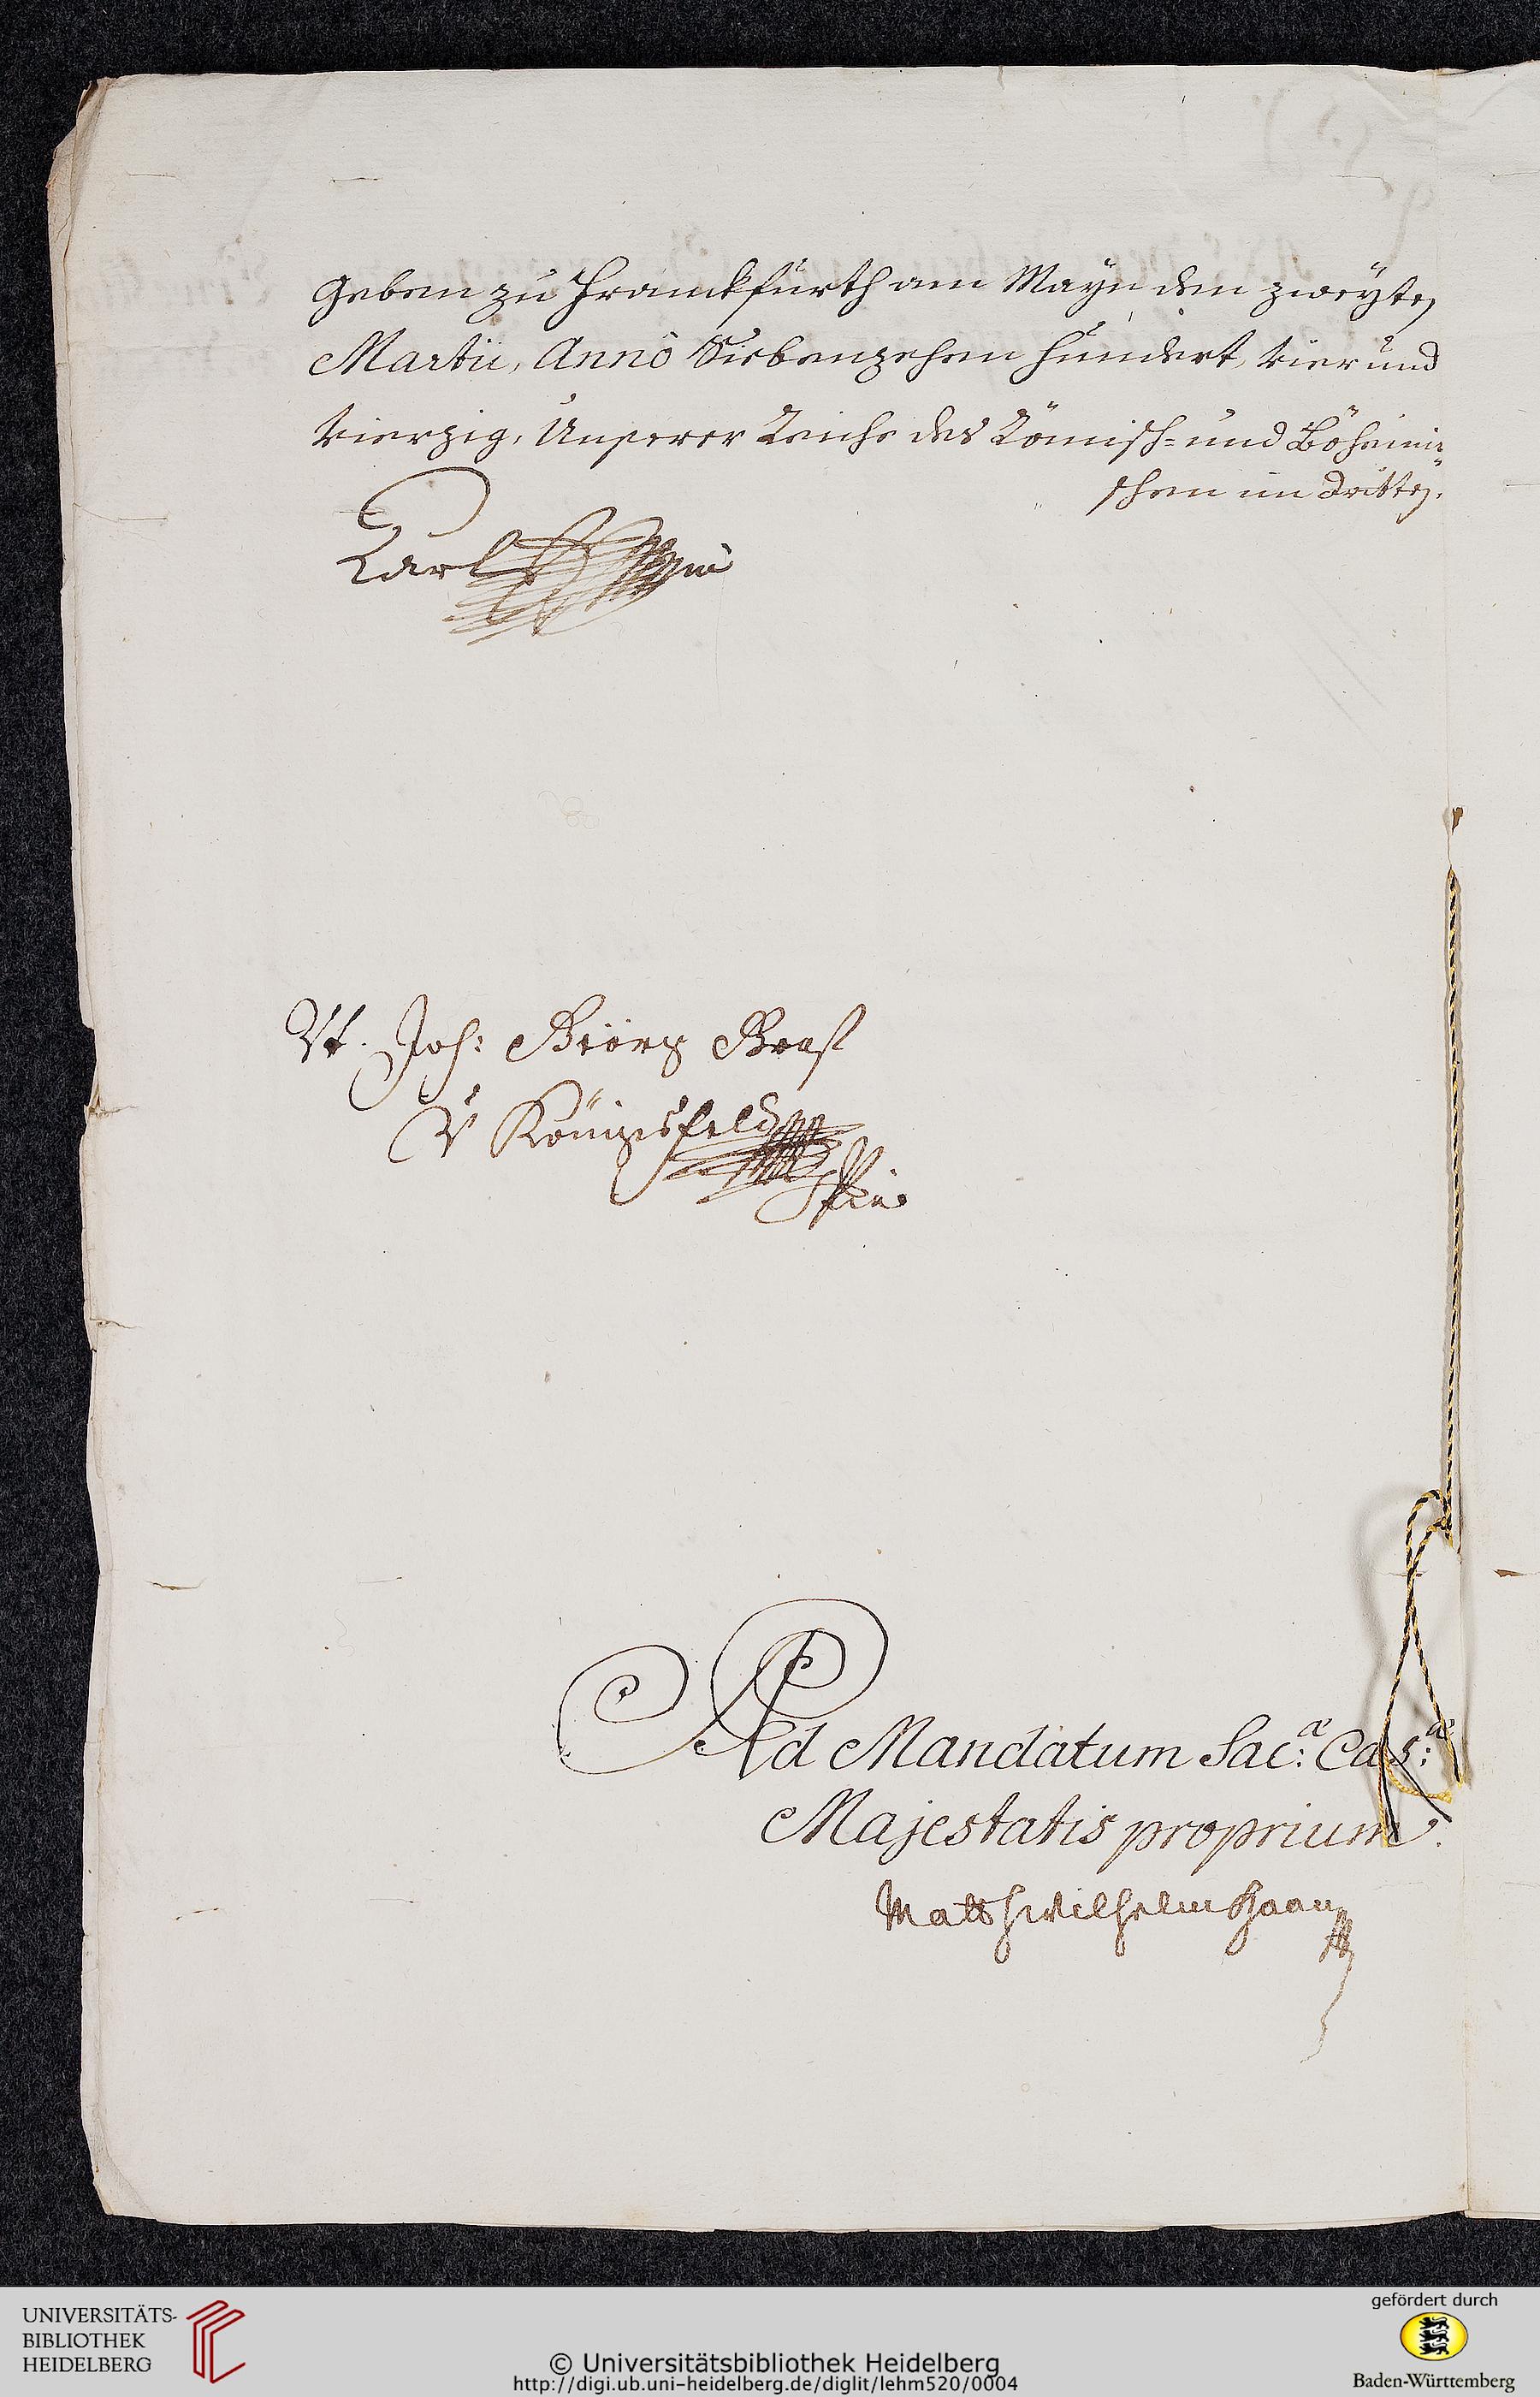 Geben zu Franckfurth am Mayn den zweyten
Martii, Anno Siebenzehen hundert, vier und
vierzig, Unserer Reiche des Römisch= und Böheimi=
schen im dritten.
Carl
Vt. Joh: Georg Graf
v Königsfeld
Ad Mandatum Sac:ae Caes:ae
Majestatis proprium.
Matth Wilhelm Haan
UNIVERSITÄTS-
BIBLIOTHEK
HEIDELBERG
© Universitätsbibliothek Heidelberg
http://digi.ub.uni-heidelberg.de/diglit/lehm520/0004
gefördert durch
Baden-Württemberg